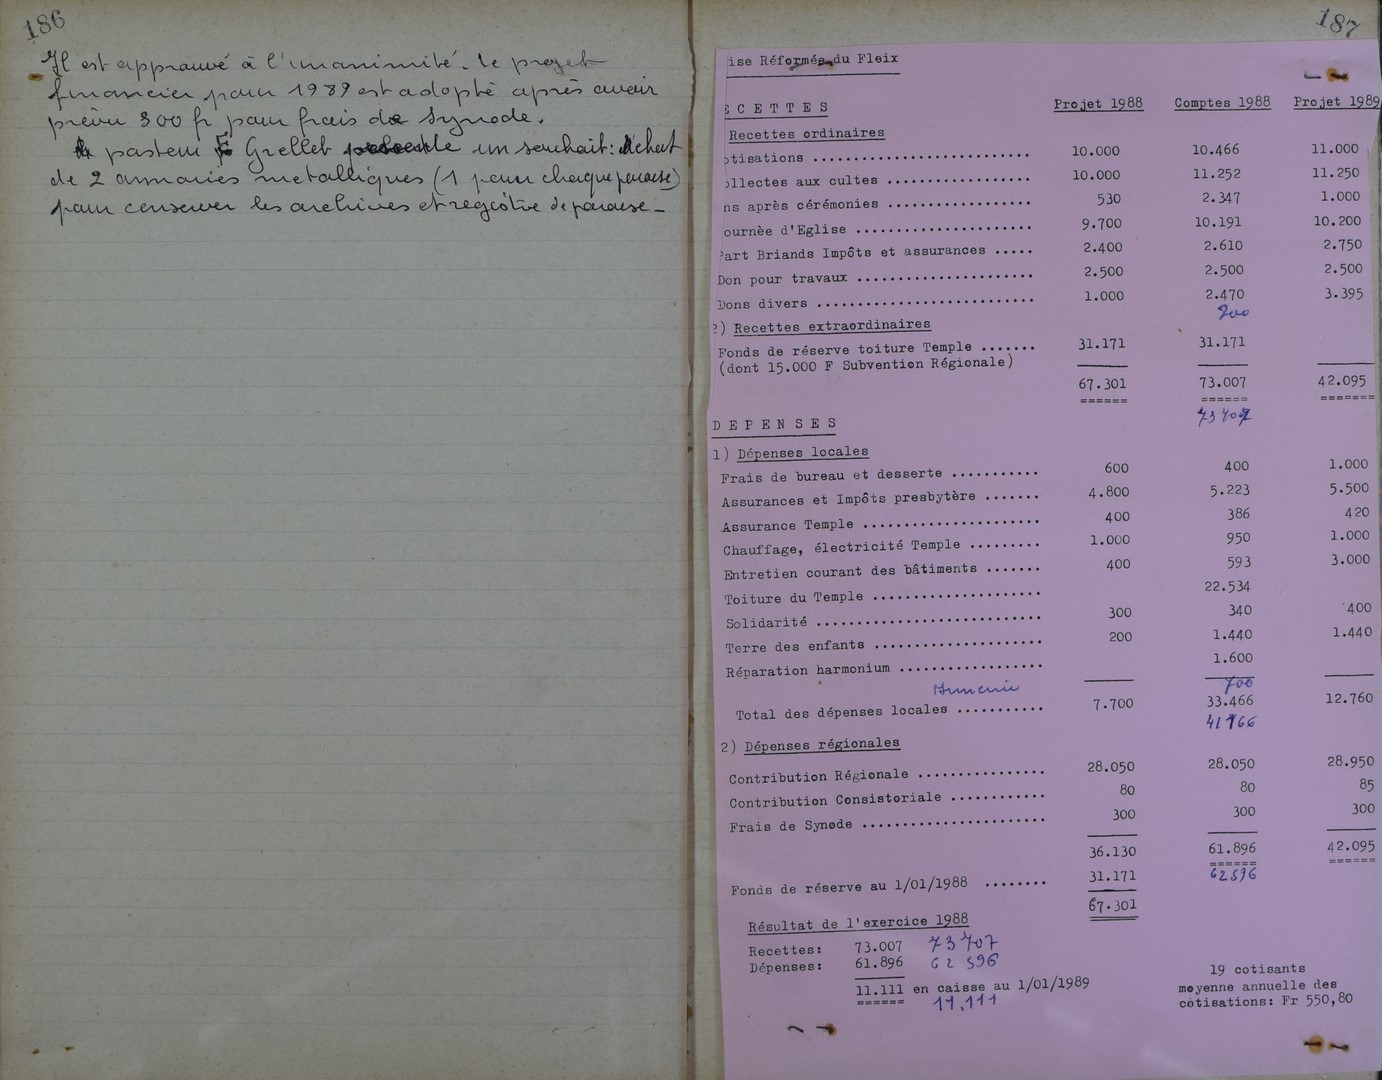 186
Il est approuvé à l'unanimité. le projet
financier pour 1989 est adopté après avoir
prévu 300 fr pour frais de Synode.
pasteur Grellet un souhait: l'achat
de 2 armoires metalliques (1 pour chaque paroisse)
pour conserver les archives et registre de paroisse_
187
ise Réformée du Fleix
ECETTES Projet 1988 Comptes 1988 Projet 1989
Recettes ordinaires
otisations .......................... 10.000 10.466 11.000
ollectes aux cultes ................. 10.000 11.252 11.250
ns après cérémonies ................. 530 2.347 1.000
ournèe d'Eglise ..................... 9.700 10.191 10.200
Part Briands Impôts et assurances ..... 2.400 2.610 2.750
Don pour travaux ..................... 2.500 2.500 2.500
Dons divers .......................... 1.000 2.470 3.395
700
2) Recettes extraordinaires
Fonds de réserve toiture Temple ....... 31.171 31.171
(dont 15.000 F Subvention Régionale)
67.301 73.007 42.095
====== ====== =======
73707
DEPENSES
1) Dépenses locales
Frais de bureau et desserte ........... 600 400 1.000
Assurances et Impôts presbytère ....... 4.800 5.223 5.500
Assurance Temple ...................... 400 386 420
Chauffage, électricité Temple ......... 1.000 950 1.000
Entretien courant des bâtiments ....... 400 593 3.000
Toiture du Temple ..................... 22.534
Solidarité ............................ 300 340 400
Terre des enfants ..................... 200 1.440 1.440
Réparation harmonium .................. 1.600
Armenie 700
Total des dépenses locales ........... 7.700 33.466 12.760
41166
2) Dépenses régionales
Contribution Régionale ................ 28.050 28.050 28.950
Contribution Consistoriale ............ 80 80 85
Frais de Synode ....................... 300 300 300
36.130 61.896 42.095
====== ======
Fonds de réserve au 1/01/1988 ........ 31.171 62596
67.301
Résultat de l'exercice 1988
Recettes: 73.007 73707
Dépenses: 61.896 62596
11.111 en caisse au 1/01/1989
====== 11.111
19 cotisants
moyenne annuelle des
cotisations: Fr 550,80